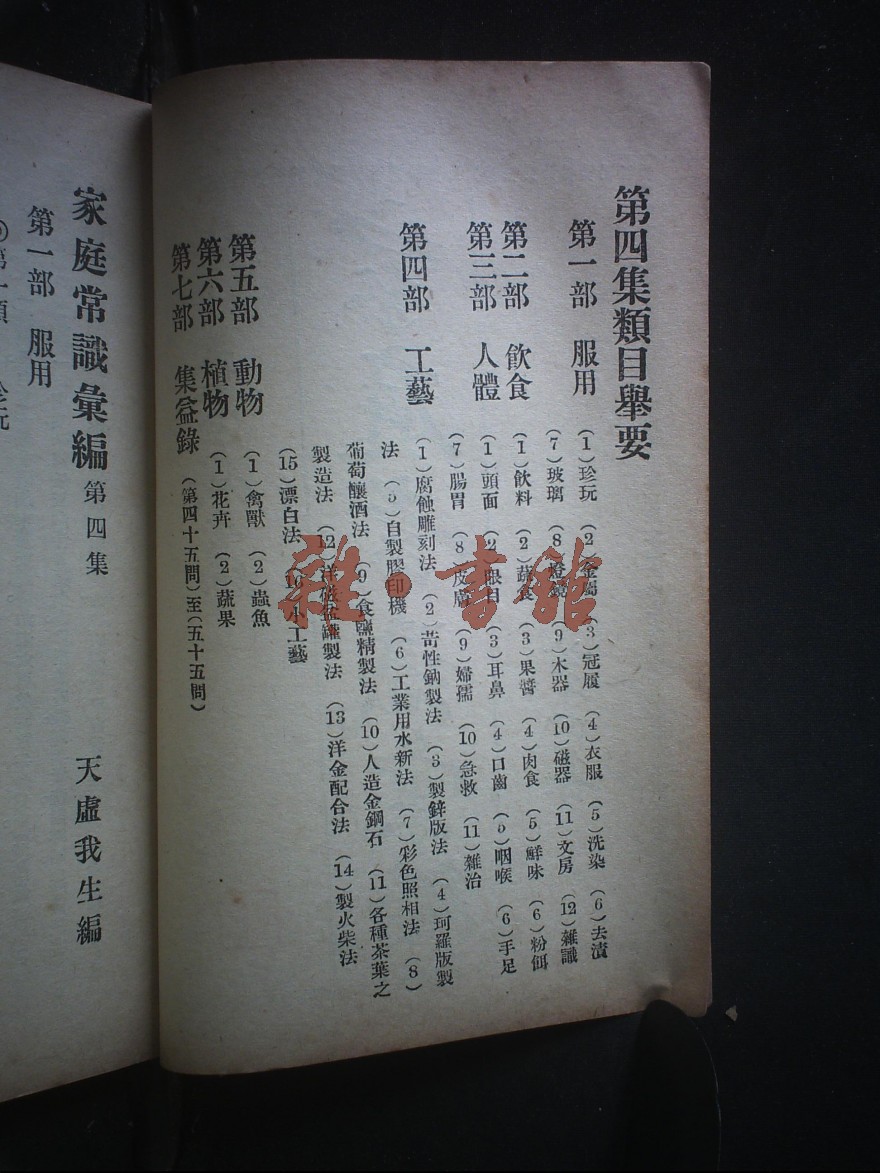 第四集類目舉要
第一部　服用
（1）珍玩　（2）金屬　（3）冠履　（4）衣服　（5）洗染　（6）去漬
（7）玻璃　（8）燈鏡　（9）木器　（10）磁器　（11）文房　（12）雜識
第二部　飲食
（1）飲料　（2）蔬食　（3）果醬　（4）肉食　（5）鮮味　（6）粉餌
第三部　人體
（1）頭面　（2）眼目　（3）耳鼻　（4）口齒　（5）咽喉　（6）手足
（7）腸胃　（8）皮膚　（9）婦孺　（10）急救　（11）雜治
第四部　工藝
（1）腐蝕雕刻法　（2）苛性鈉製法　（3）製鋅版法　（4）珂羅版製
法　（5）自製膠印機　（6）工業用水新法　（7）彩色照相法　（8）
葡萄釀酒法　（9）食鹽精製法　（10）人造金鋼石　（11）各種茶葉之
製造法　（12）洋磁盆罐製法　（13）洋金配合法　（14）製火柴法
（15）漂白法　（16）小工藝
第五部　動物
（1）禽獸　（2）蟲魚
第六部　植物
（1）花卉　（2）蔬果
第七部　集益錄
（第四十五問）至（五十五問）
家庭常識彙編　第四集　天虛我生編
第一部　服用
雜·書館